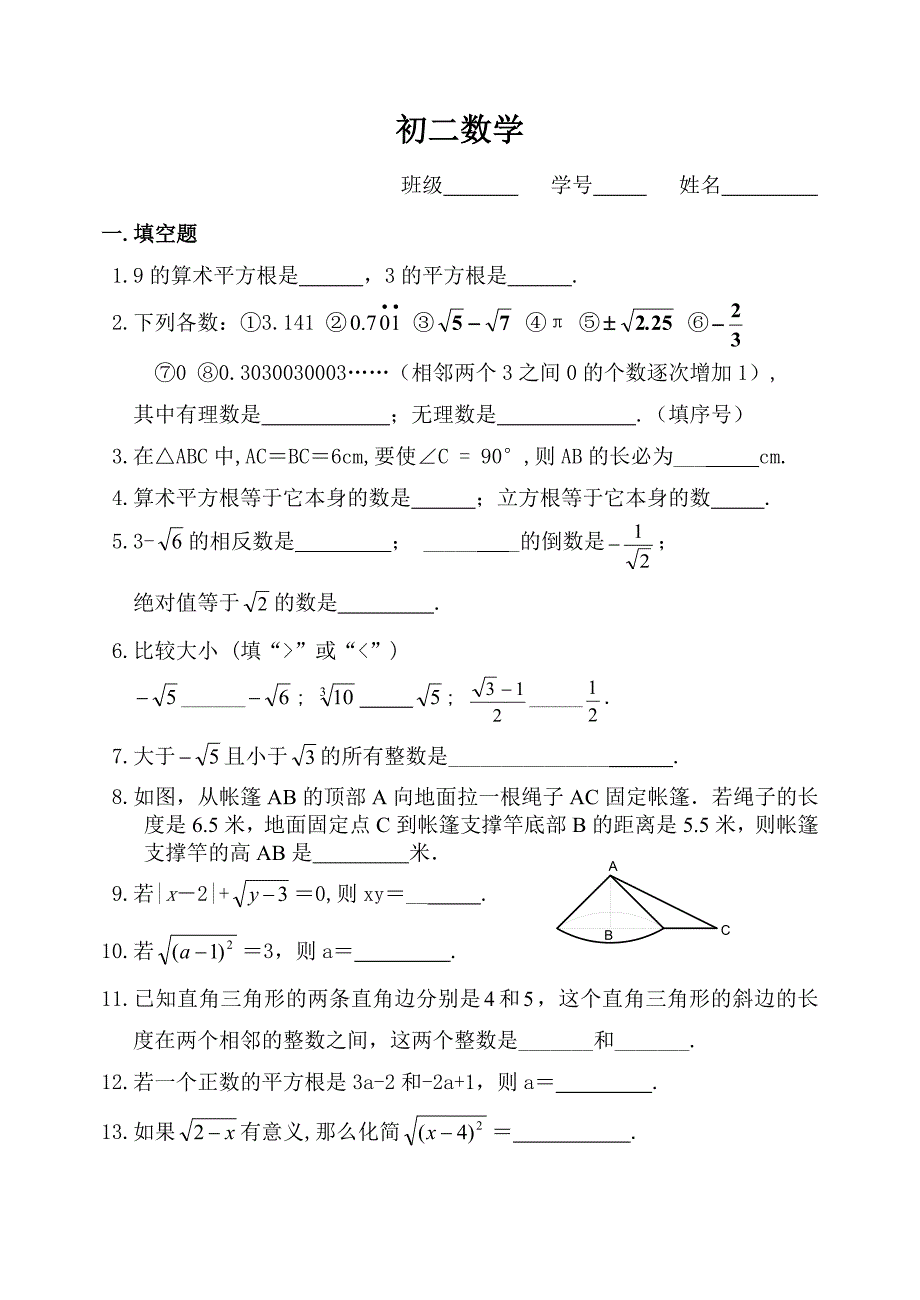 初二数学
班级_______ 学号_____ 姓名_________
一.填空题
1.9的算术平方根是______,3的平方根是______.
2.下列各数:①3.141 ②0.70̇1̇ ③√5−√7 ④π ⑤±√2.25 ⑥−2/3
⑦0 ⑧0.3030030003……(相邻两个3之间0的个数逐次增加1),
其中有理数是____________;无理数是_____________.(填序号)
3.在△ABC中,AC=BC=6cm,要使∠C = 90°,则AB的长必为________cm.
4.算术平方根等于它本身的数是______;立方根等于它本身的数_____.
5.3-√6的相反数是_________; _________的倒数是−1/√2;
绝对值等于√2的数是_________.
6.比较大小 (填“>”或“<”)
−√5______−√6; ∛10_____√5; (√3−1)/2_____1/2.
7.大于−√5且小于√3的所有整数是_____________________.
8.如图,从帐篷AB的顶部A向地面拉一根绳子AC固定帐篷.若绳子的长
度是6.5米,地面固定点C到帐篷支撑竿底部B的距离是5.5米,则帐篷
支撑竿的高AB是_________米.
A
B
C
9.若|x−2|+√(y−3)=0,则xy=_______.
10.若√((a−1)²)=3,则a=_________.
11.已知直角三角形的两条直角边分别是4和5,这个直角三角形的斜边的长
度在两个相邻的整数之间,这两个整数是_______和_______.
12.若一个正数的平方根是3a-2和-2a+1,则a=_________.
13.如果√(2−x)有意义,那么化简√((x−4)²)=___________.